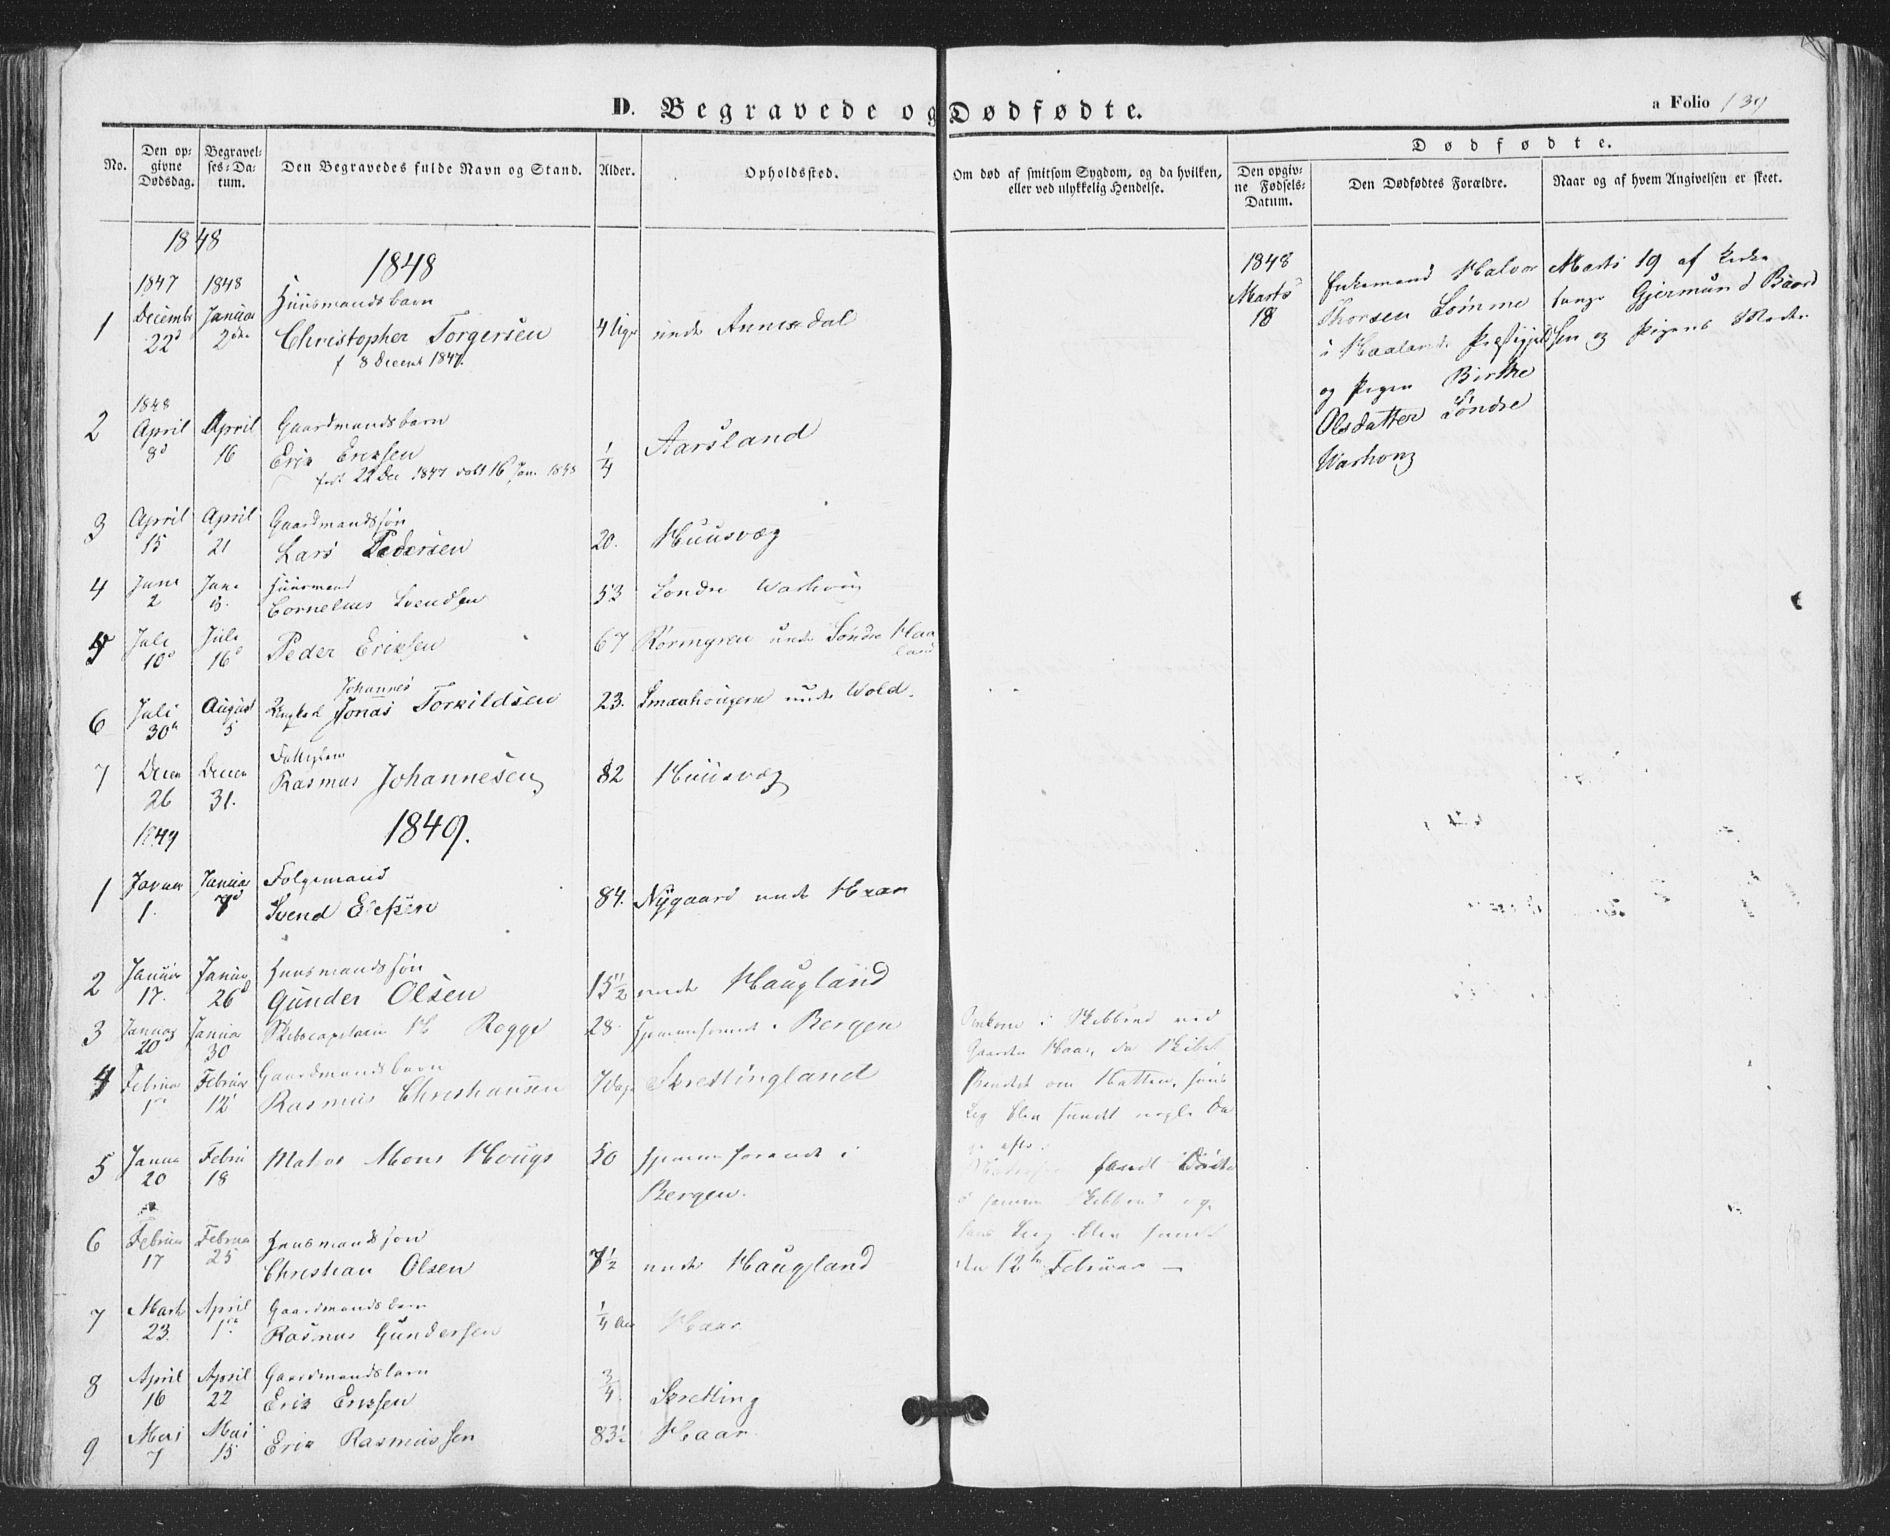 D. Begravede og Dødfødte.
a Folio 139
No.
Den op-
givne
Dødsdag.
Begravel-
ses-Da-
tum.
Den Begravedes fulde Navn og Stand.
Alder.
Opholdssted.
Om død af smitsom Sygdom, og da hvilken,
eller ved ulykkelig Hendelse.
Dødfødte.
Den opgiv-
ne Fødsels-
Datum.
Den Dødfødtes Forældre.
Naar og af hvem Angivelsen er skeet.
1848
1848
1847
1848
1 Decembr 22d Januar 2den Huusmandsbarn
Christopher Torgersen 4 Uger under Annisdal
f 8 Decemb 1847.
1848
2 April 8d April 16 Gaardmandsbarn
Erik Eriksen 1/4 Aarsland
født 22 Dec 1847 døbt 16 Jan. 1848
3 April 15 April 21 Gaardmandssøn
Lars Pedersen 20. Huusvæg
4 Juni 2 Juni Huusmand
Cornelius Svendsen 53 Søndre Warhoug
5 Juli 10d Juli 16d Peder Eriksen 67 Rørmyren under Søndre Haa
land
6 Juli 30 August 5 Ungkarl Johannes
Jonas Torkildsen 23. Smaahougene under Wold.
7 Decem 26 Decem 31. Fattiglem
Rasmus Johannesen 82 Huusvæg
1849
1849.
1 Januar 1. Januar 7d Folgemand
Svend 84. Nygaard under Haar
2 Januar 17. Januar 26d Huusmandssøn
Gunder Olsen 15 1/2 under Haugland
3 Januar 20 Januar 30 Skibscapitain H Rogge 28. hjemmehørende i Bergen
4 Februar 1 Februar 12 Gaardmandsbarn
Rasmus Christiansen 7 Dage Skrettingland
5 Januar 20 Febru 18 Matros Mons Hougs 50 hjemmehørende i
Bergen.
6 Februar 17 Februar 25 Huusmandssøn
Christian Olsen 7 1/2 under Haugland
7 Marts 23. April 1 Gaardmandsbarn
Rasmus Gundersen 1/4 Aar Haar
8 April 16 April 22 Gaardmandsbarn
Erik Eriksen 3/4 Skretting
9 Mai 7 Mai 15 Erik Rasmussen 83 1/2 Haar
Omkom i Skibbrud ved
Gaarden Haar, da Skibet
om Natten, hans
Lig blev fundet nogle Da
ge efter.
fandt Døden
i samme Skibbrud og
hans Lig blev fundet
den 12te Februar —
1848
Marts
18
Enkemand Halvor
Thorsen Lømme
i Haalands Præstegjeld
og Pigen Birthe
Olsdatter Søndre
Warhoug
Marts 19 af Kirke
sanger Gjermund Baard
sen og Pigens Moder